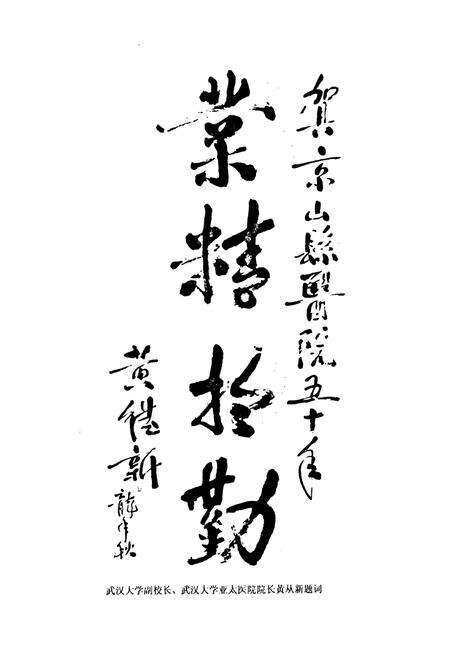 贺京山县醫院五十年
業精於勤
黄從新
龍年秋
武汉大学副校长、武汉大学亚太医院院长黄从新题词